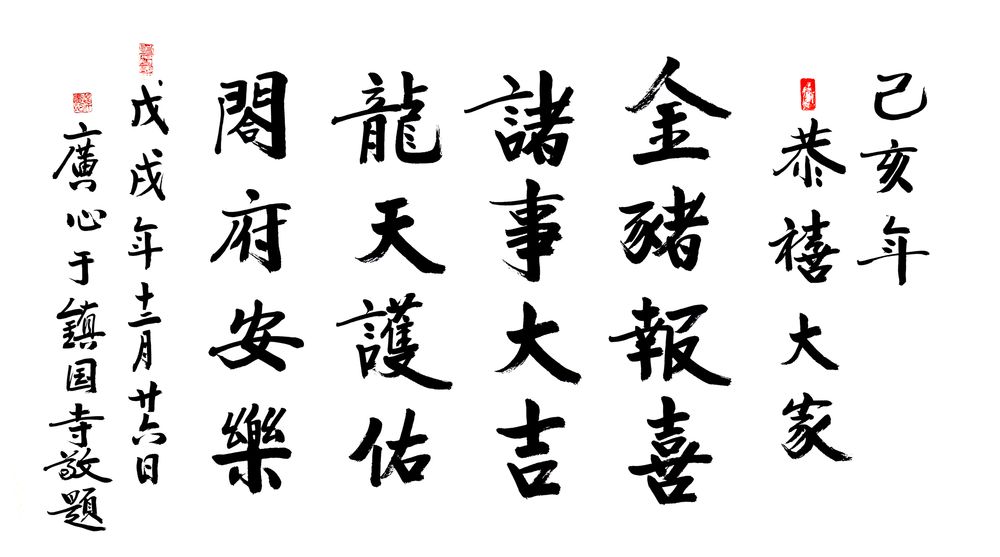 己亥年
恭禧大家
金豬報喜
諸事大吉
龍天護佑
閤府安樂
戊戌年十二月廿六日
廣心于鎮国寺敬題